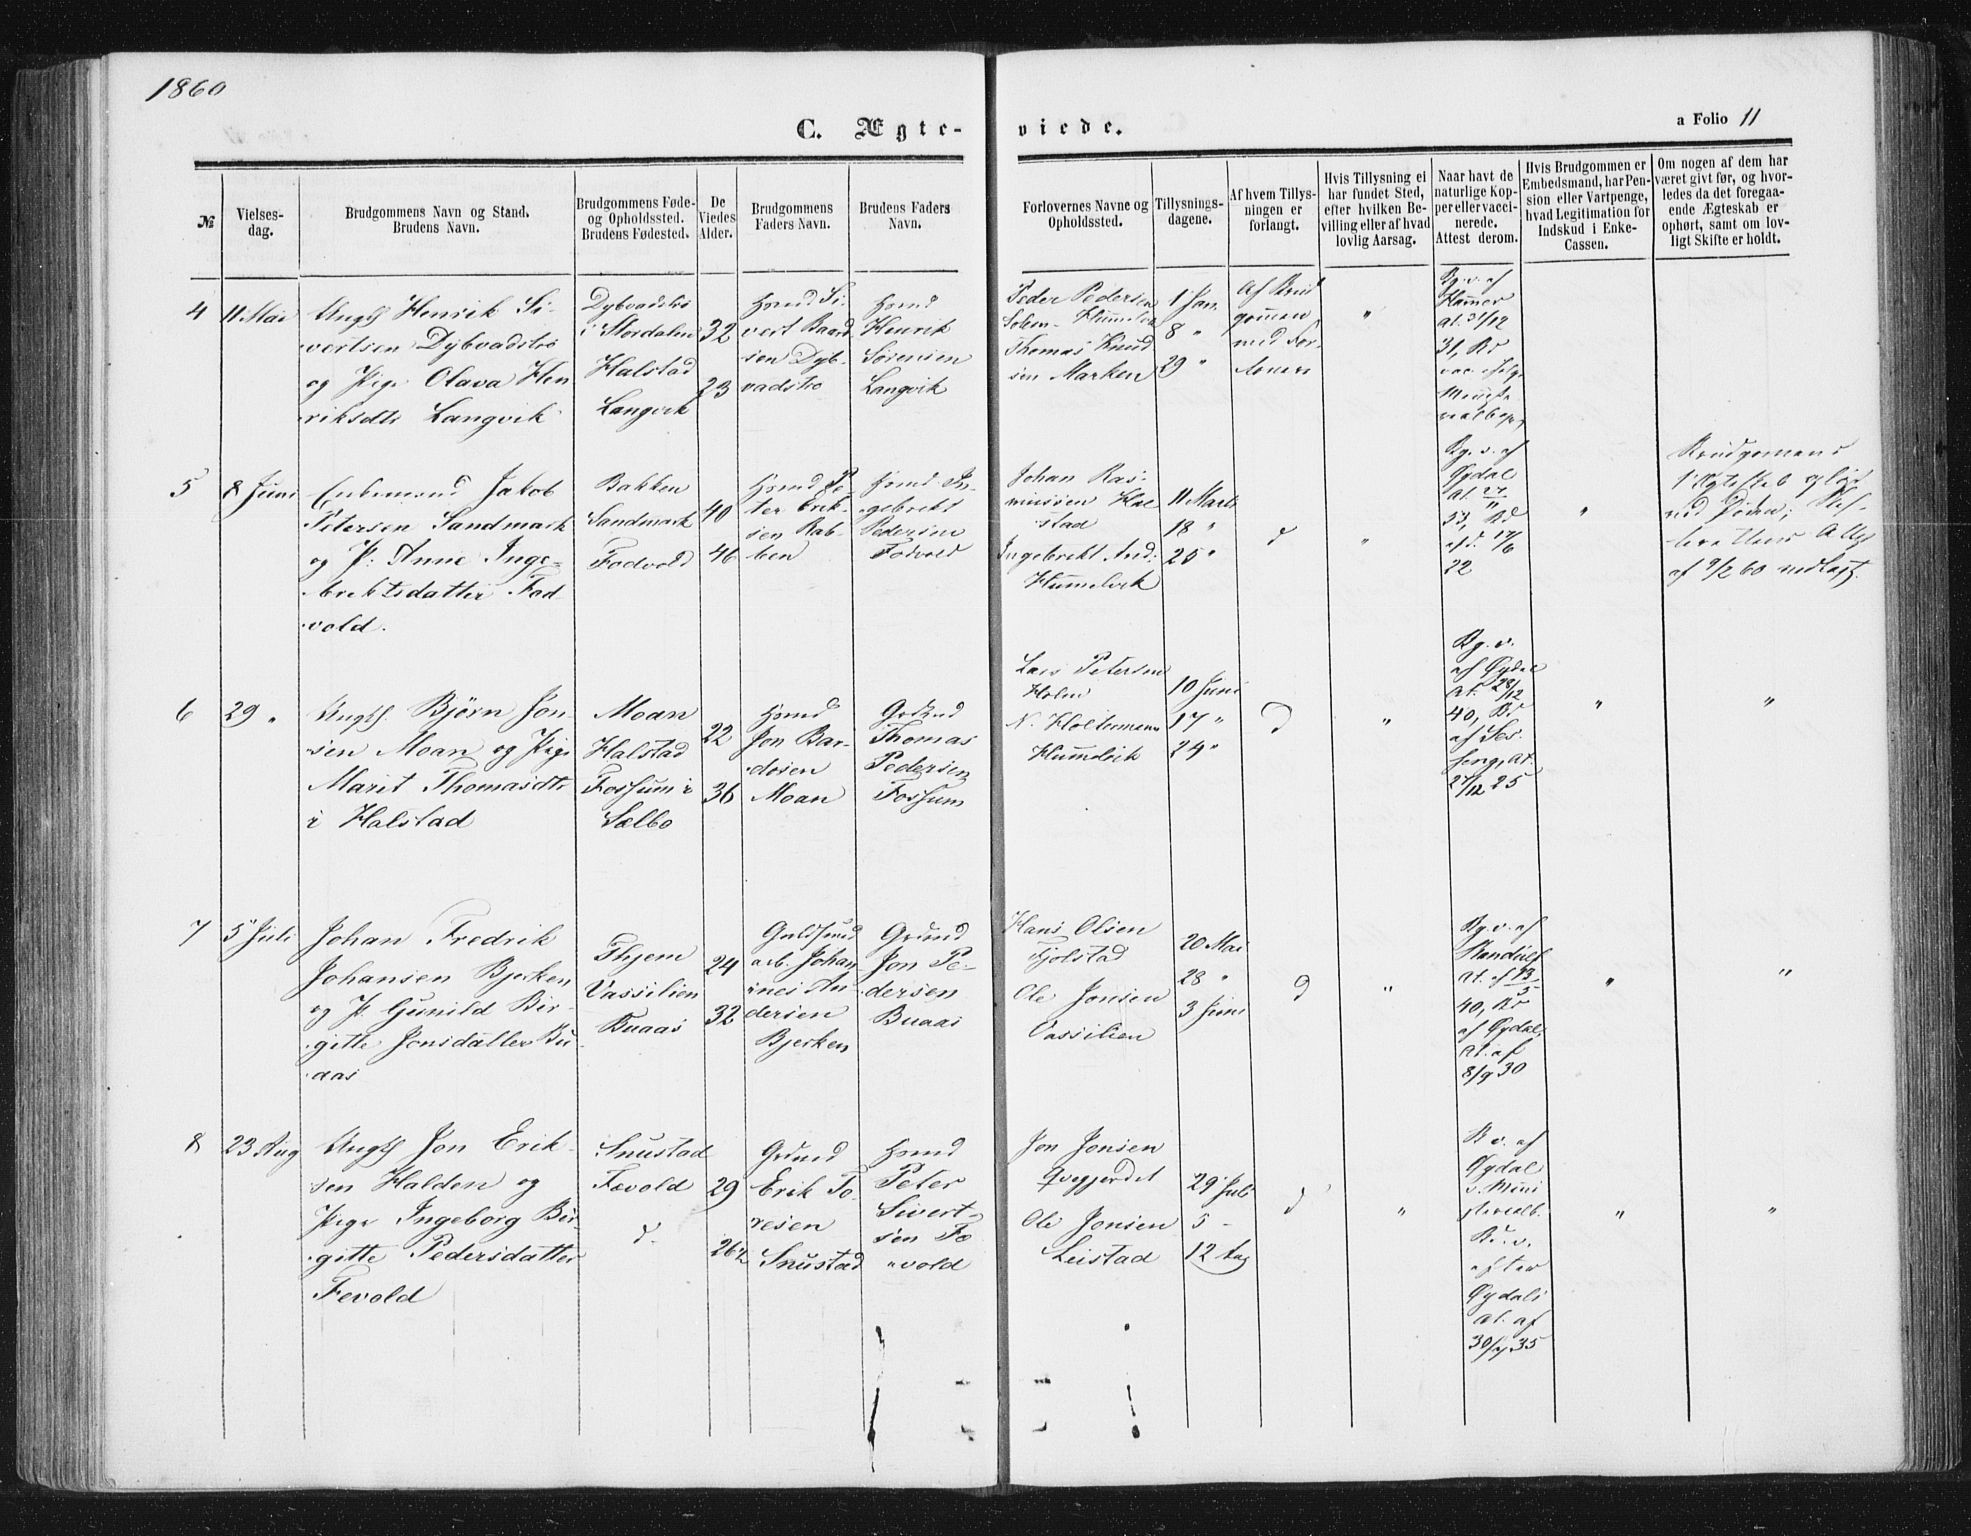 1860
C. Ægte-
viede.
a Folio 11
№
Vielses-
dag.
Brudgommens Navn og Stand.
Brudens Navn.
Brudgommens Føde-
og Opholdssted.
Brudens Fødested.
De
Viedes
Alder.
Brudgommens
Faders Navn.
Brudens Faders
Navn.
Forlovernes Navne og
Opholdssted.
Tillysnings-
dagene.
Af hvem Tillys-
ningen er
forlangt.
Hvis Tillysning ei
har fundet Sted,
efter hvilken Be-
villing eller af hvad
lovlig Aarsag.
Naar havt de
naturlige Kop-
per eller vacci-
nerede.
Attest derom.
Hvis Brudgommen er
Embedsmand, har Pen-
sion eller Vartpenge,
hvad Legitimation for
Indskud i Enke-
Cassen.
Om nogen af dem har
været givt før, og hvor-
ledes da det foregaa-
ende Ægteskab er
ophørt, samt om lov-
ligt Skifte er holdt.
4
11 Mai
Ungk Henrik Si-
vertsen Dybvadstrø
og Pige Olava Hen
riksdtr Langvik
Dybvadstrø
i Stordalen
Halstad
Langvik
32
23
Hmd Si-
vert Baard
sen Dyb-
vadstrø
Hmd
Henrik
Sørensen
Langvik
Peder Pedersen
Solem
Thomas Knud
sen Marken
1 Jan
8 "
29 "
Af Brud
gommen
med For-
"
Bg. v. af
Hamer
at. 31/12
31, Br
vac.
5
8 Juni
Enkemand Jakob
Petersen Sandmark
og P. Anne Inge-
brektsdatter Fod-
vold.
Bakken
Sandmark
Fodvold
40
46
Hmd Pe
ter Erik-
sen Bak-
ken
Hmd In-
gebrekt
Pedersen
Fodvold
Johan Ras-
mussen Hal
stad
Ingebrekt And.
Hummelvik
11 Marts
18 "
25 "
d
"
Bg. v. af
Gydal
at. 27/11
33, Bd
af d. 17/6
22
"
Brudgommens
1 Ægteskab opløst
ved Døden; Skif-
terettens Attest
af 9/2 60 nedlagt.
6
29 "
Ungk. Bjørn Jon-
sen Moan og Pige
Marit Thomasdtr
i Halstad
Moan
Halstad
Fossum i
Sælbo
22
36
Hmd
Jon Bar-
dosen
Moan
Thomas
Pedersen
Fossum
Lars Petersen
Holm
N. Holtermann
Hummelvik
10 Juni
17 "
24 "
d
"
Bg. v.
af Gydal
at. 28/12
40, Br
af
at.
27/12 25
"
"
7
5 Juli
Johan Fredrik
Johansen Bjerken
og P. Gunild Bir-
gitte Jonsdatter Bu
aas
Hjem
Vassilien
Buaas
24
32
arb. Johan-
nes An-
dersen
Bjerken
Grund
Jon Pe-
dersen
Buaas
Hans Olsen
Fjølstad
Ole Jonsen
Vassilien
20 Mai
28 "
3 Juni
d
"
Bg. v. af
at. af 13/5
40, Br
af Gydal
at. af
8/9 30
"
"
8
23 Aug
Ungk Jon Erik-
sen Halden og
Pige Ingeborg Bir-
gitte Pedersdatter
Fevold
Snustad
Fævold
d.
29
26½
Grund
Erik To-
resen
Snustad
Hmd
Peter
Sivert-
sen Fæ
vold
Jon Jonsen
Qvegjerdet
Ole Jonsen
Leistad
29 Juli
5 -
12 Aug
d
"
B v. af
Gydal
v. Mini
sterialb.
Br. v.
efter
Gydals
at. af
30/9 35
"
"